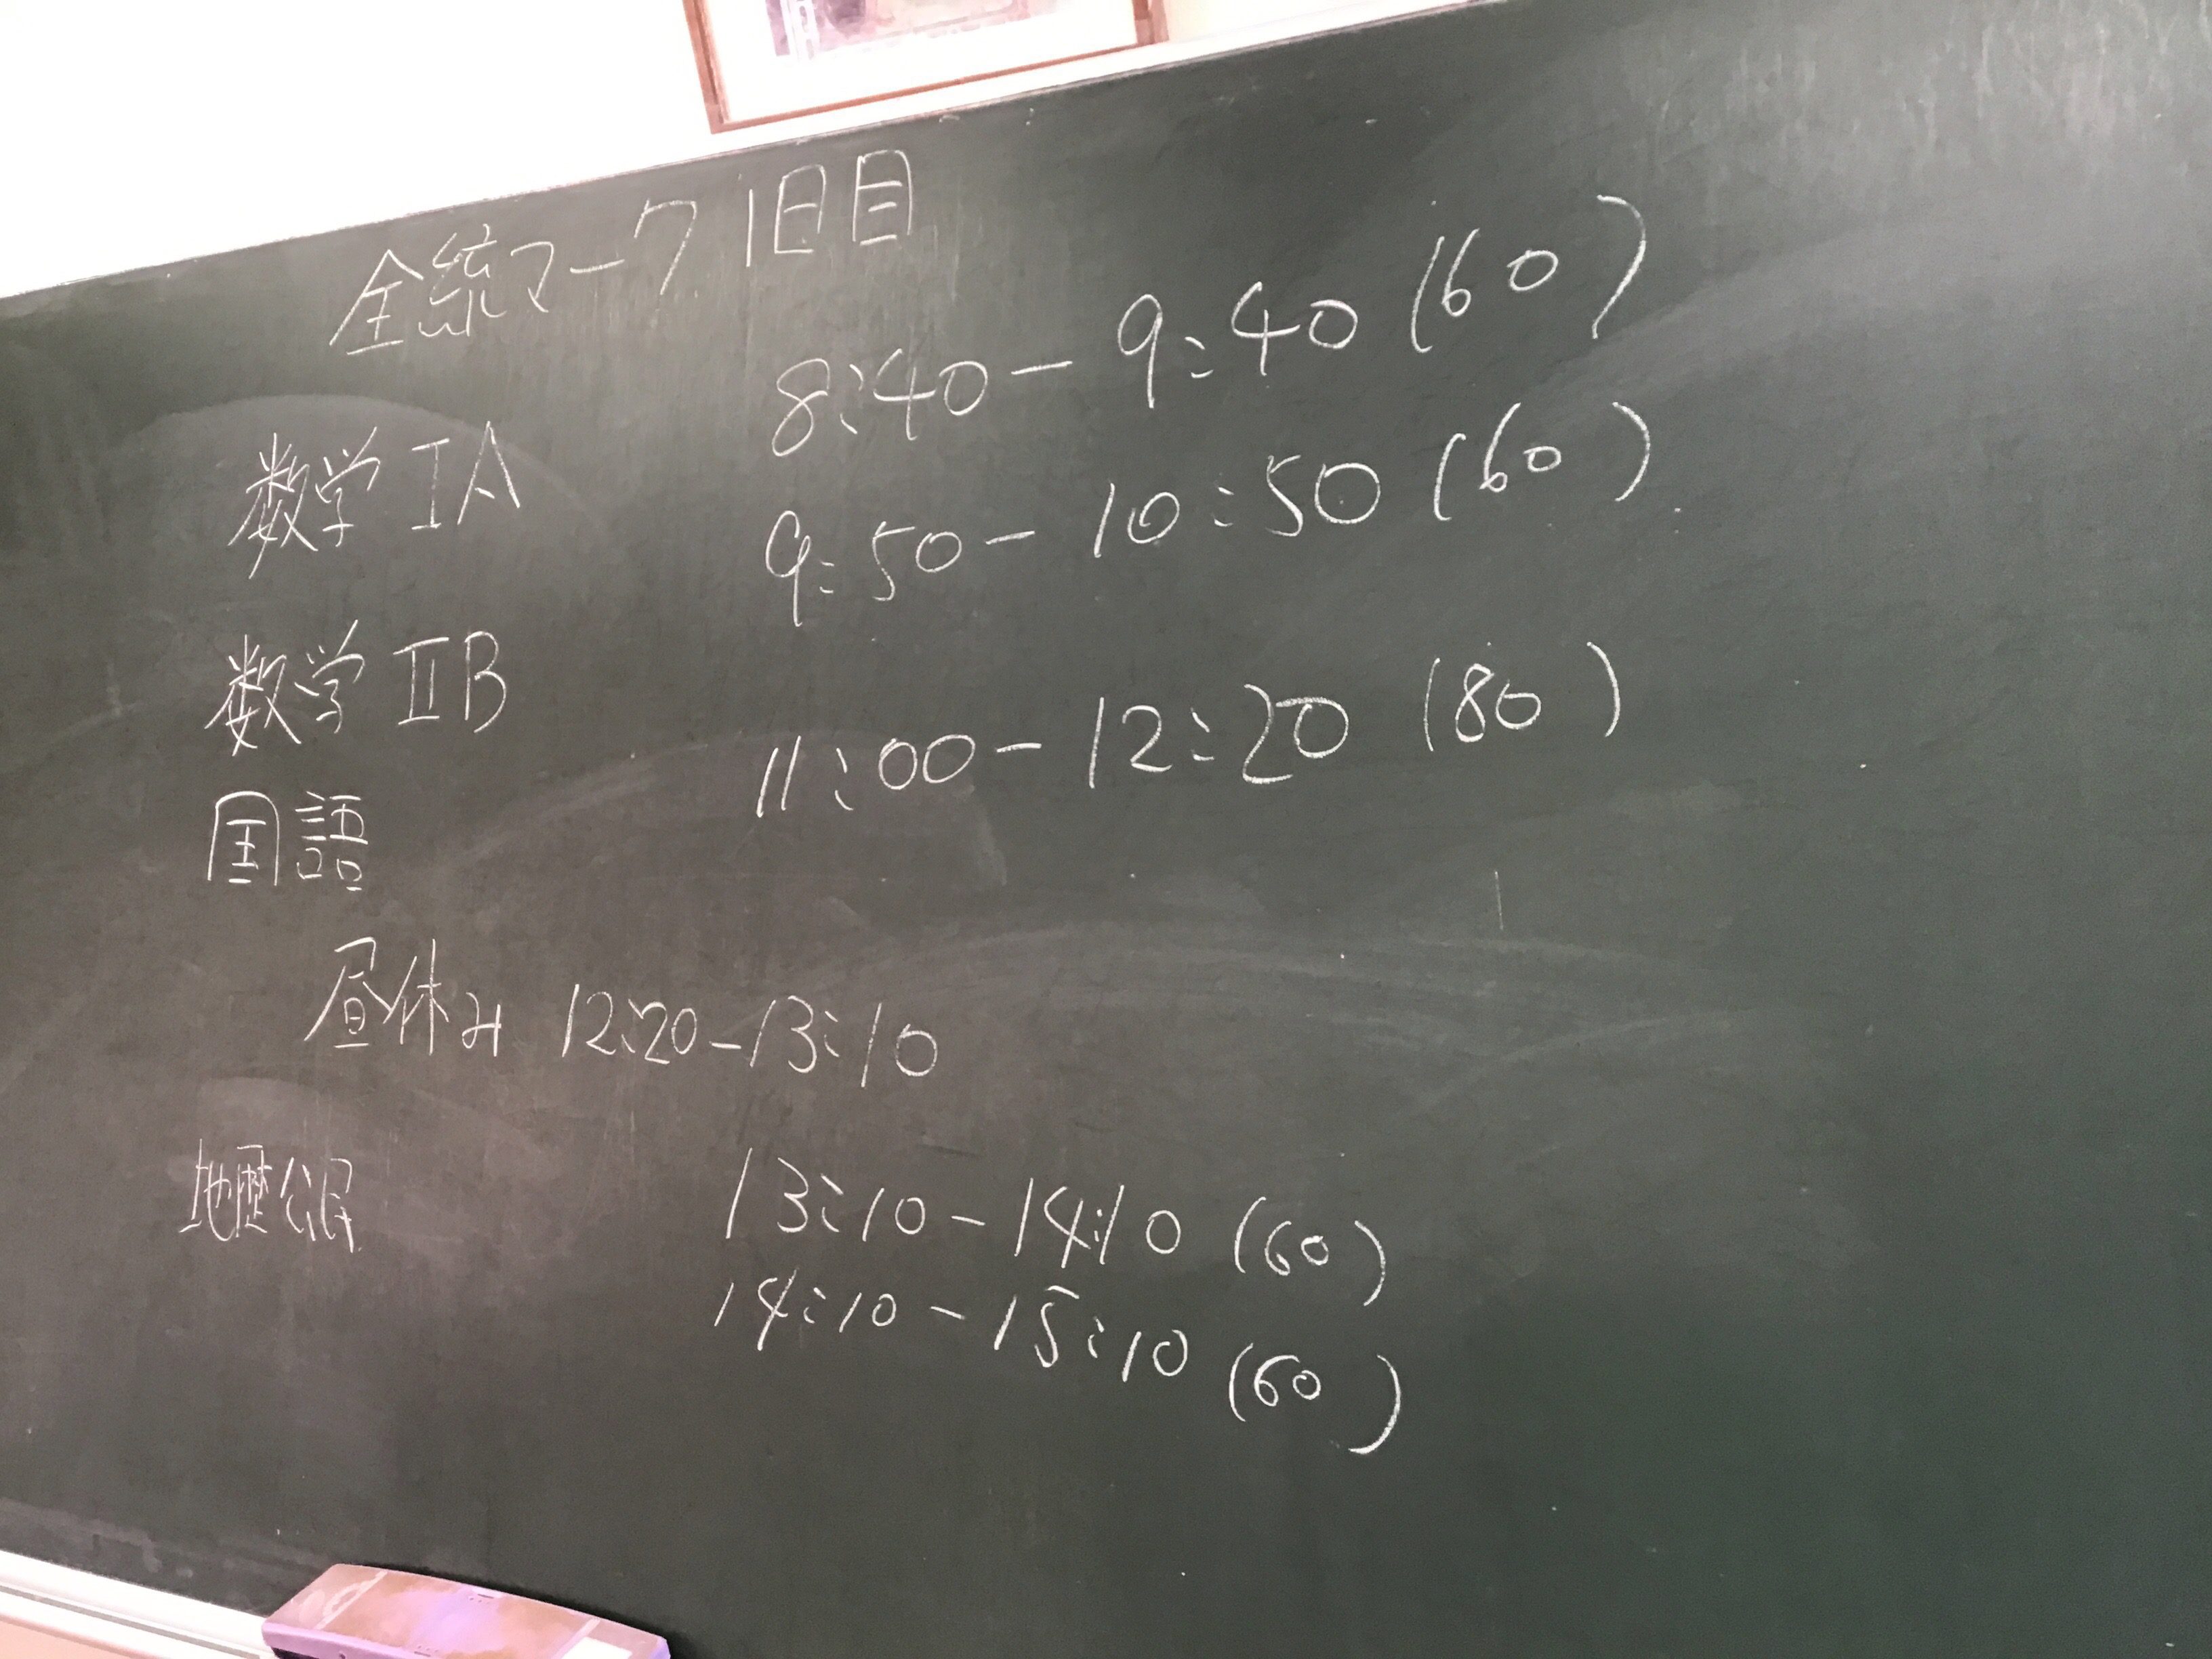 全統マーク 1日目
数学ⅠA 8:40-9:40 (60)
数学ⅡB 9:50-10:50 (60)
国語 11:00-12:20 (80)
昼休み 12:20-13:10
地歴公民 13:10-14:10 (60)
14:10-15:10 (60)